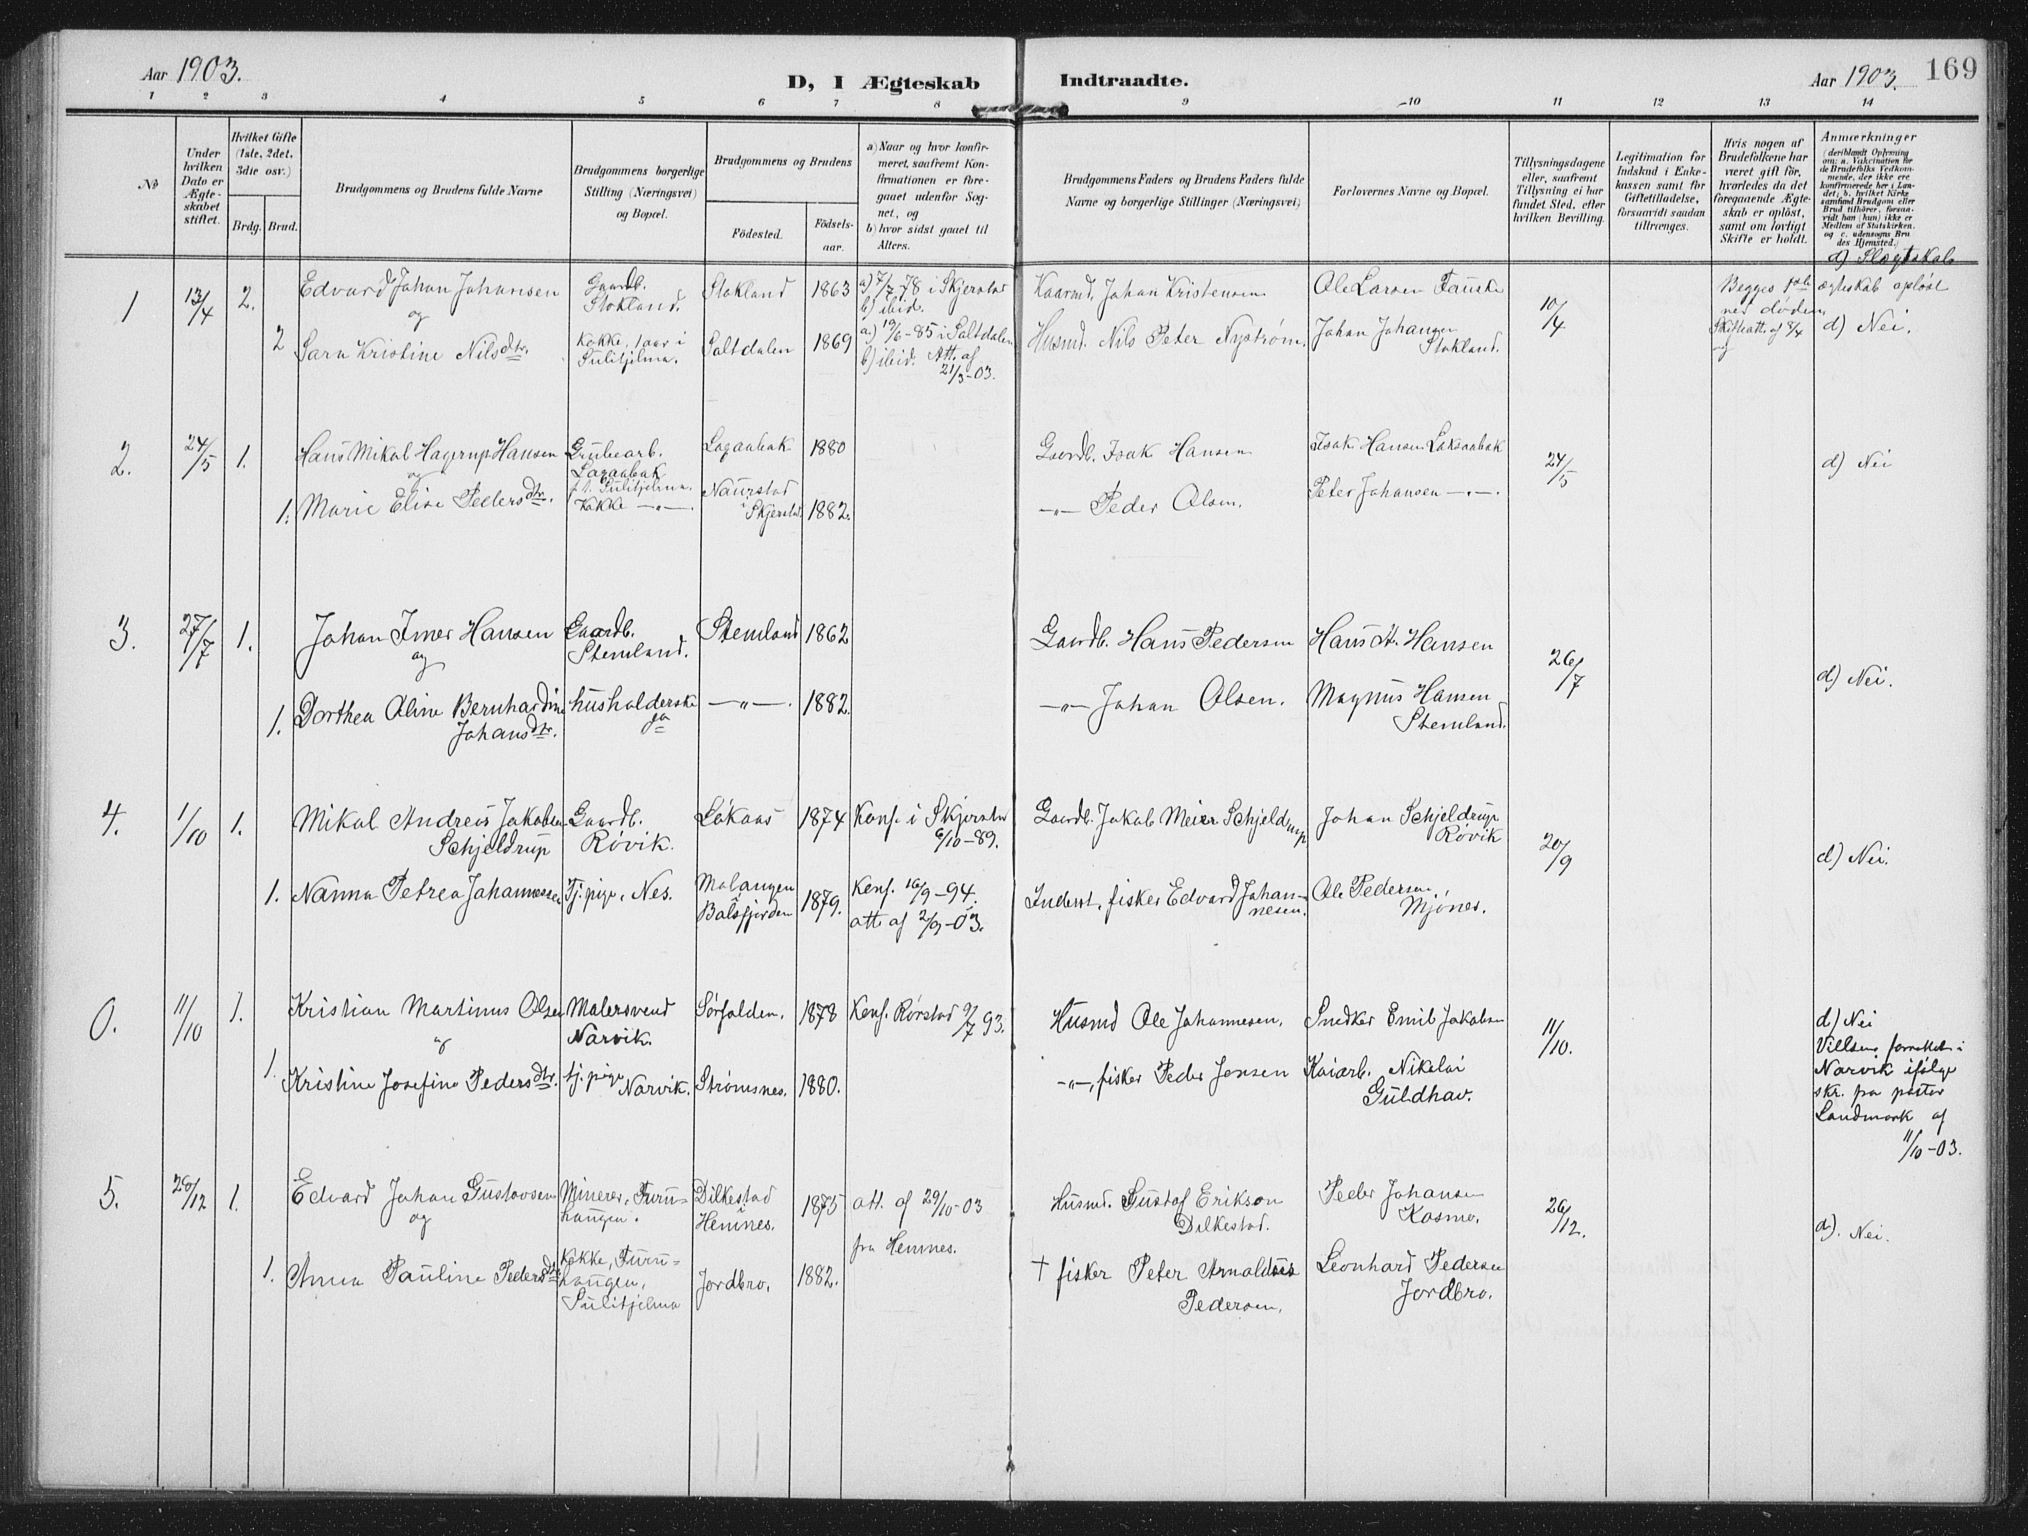 Aar 1903.
D, I Ægteskab Indtraadte.
Aar 1903. 169
1 2 3 4 5 6 7 8 9 10 11 12 13 14
No
Under hvilken Dato er Ægteskabet stiftet.
Hvilket Gifte (1ste, 2det, 3die osv.)
Brdg. Brud.
Brudgommens og Brudens fulde Navne
Brudgommens borgerlige Stilling (Næringsvei) og Bopæl.
Brudgommens og Brudens
Fødested. Fødselsaar.
a) Naar og hvor konfirmeret, saafremt Konfirmationen er foregaaet udenfor Sognet, og
b) hvor sidst gaaet til Alters.
Brudgommens Faders og Brudens Faders fulde Navne og borgerlige Stillinger (Næringsvei)
Forlovernes Navne og Bopæl.
Tillysningsdagene eller, saafremt Tillysning ei har fundet Sted, efter hvilken Bevilling.
Legitimation for Indskud i Enkekassen samt for Giftetilladelse, forsaavidt saadan tiltrænges.
Hvis nogen af Brudefolkene har været gift før, hvorledes da det foregaaende Ægteskab er opløst, samt om lovligt Skifte er holdt.
Anmærkninger
(deriblandt Oplysning om: a. Vakcination for de Brudefolks Vedkommende, der ikke ere konfirmerede her i Landet; b. hvilket Kirkesamfund Brudgom eller Brud tilhører, forsaavidt han (hun) ikke er Medlem af Statskirken, og c. udensogns Brudes Hjemsted.)
d) Slegtskab
1 13/4 2. Edvard Johan Johansen Gaardb. Stokland. Stokland 1863 a) 7/7 78 i Skjerstad b) ibid. Kaarmd. Johan Kristensen Ole Larsen Fauske 10/4 Begges 1ste ægteskab opløst ved døden
og
2 Sara Kristine Nilsdtr. Kokke, 1 aar i Sulitjelma. Saltdalen 1869 a) 19/6-85 i Saltdalen b) ibid. Att. af 21/3-03. Husmd. Nils Peter Nystrøm. Johan Johansen Stokland. Skifteatt. af 8/4 d) Nei.
2. 24/5 1. Hans Mikal Hagerup Hansen Grubearb. Lagaabak Lagaabak 1880 Gaardb. Isak Hansen Isak Hansen Laksaabak 24/5 d) Nei
og
1. Marie Elise Pedersdtr. f.t. Sulitjelma. Kokke —"— Naurstad i Skjerstad 1882. —"— Peder Olsen. Peter Johansen —"—.
3. 27/7 1. Johan Imer Hansen Gaardb. Stemland. Stemland 1862 Gaardb. Hans Pedersen Hans A. Hansen 26/7 d) Nei.
og
1. Dorthea Aline Bernhardine Johansdtr. husholderske —"—. 1882. —"— Johan Olsen. Magnus Hansen Stemland.
4. 1/10 1. Mikal Andreas Jakobsen Schjeldrup Gaardb. Røvik. Løkaas 1874 Konf. i Skjerstad 6/10-89. Gaardb. Jakob Meier Schjeldrup Johan Schjeldrup Røvik 20/9 d) Nei.
1. Nanna Petrea Johannesen Tj. pige, Nes. Malangen Balsfjorden 1879. Konf. 16/9-94. att af 2/9-03. Inderst, fisker Edvard Johannesen. Ole Pedersen, Mjønes.
0. 11/10 1. Kristian Martinus Olsen Malersvend Narvik. Sørfolden. 1878 Konf. Rørstad 9/7 93. Husmd Ole Johannesen. Snedker Emil Jakobsen 11/10. d) Nei
og
1. Kristine Josefine Pedersdtr. tj. pige Narvik. Strømsnes. 1880. —"—, fisker Peder Jensen Kaiarb. Nikolai Guldhav. Vielsen forrettet i Narvik ifølge skr. fra pastor Landmark af 11/10-03.
5. 26/12 1. Edvard Johan Gustavsen Minerer, Furuhaugen. Dilkestad i Hemnes. 1875 att. af 29/10-03 fra Hemnes. Husmd. Gustaf Erikson Dilkestad. Peder Johansen Kosmo. 26/12. d). Nei.
og
1. Anna Pauline Pedersdtr. Kokke, Furuhaugen, Sulitjelma Jordbro. 1882. † fisker Peter Arnoldus Pedersen. Leonhard Pedersen Jordbro.